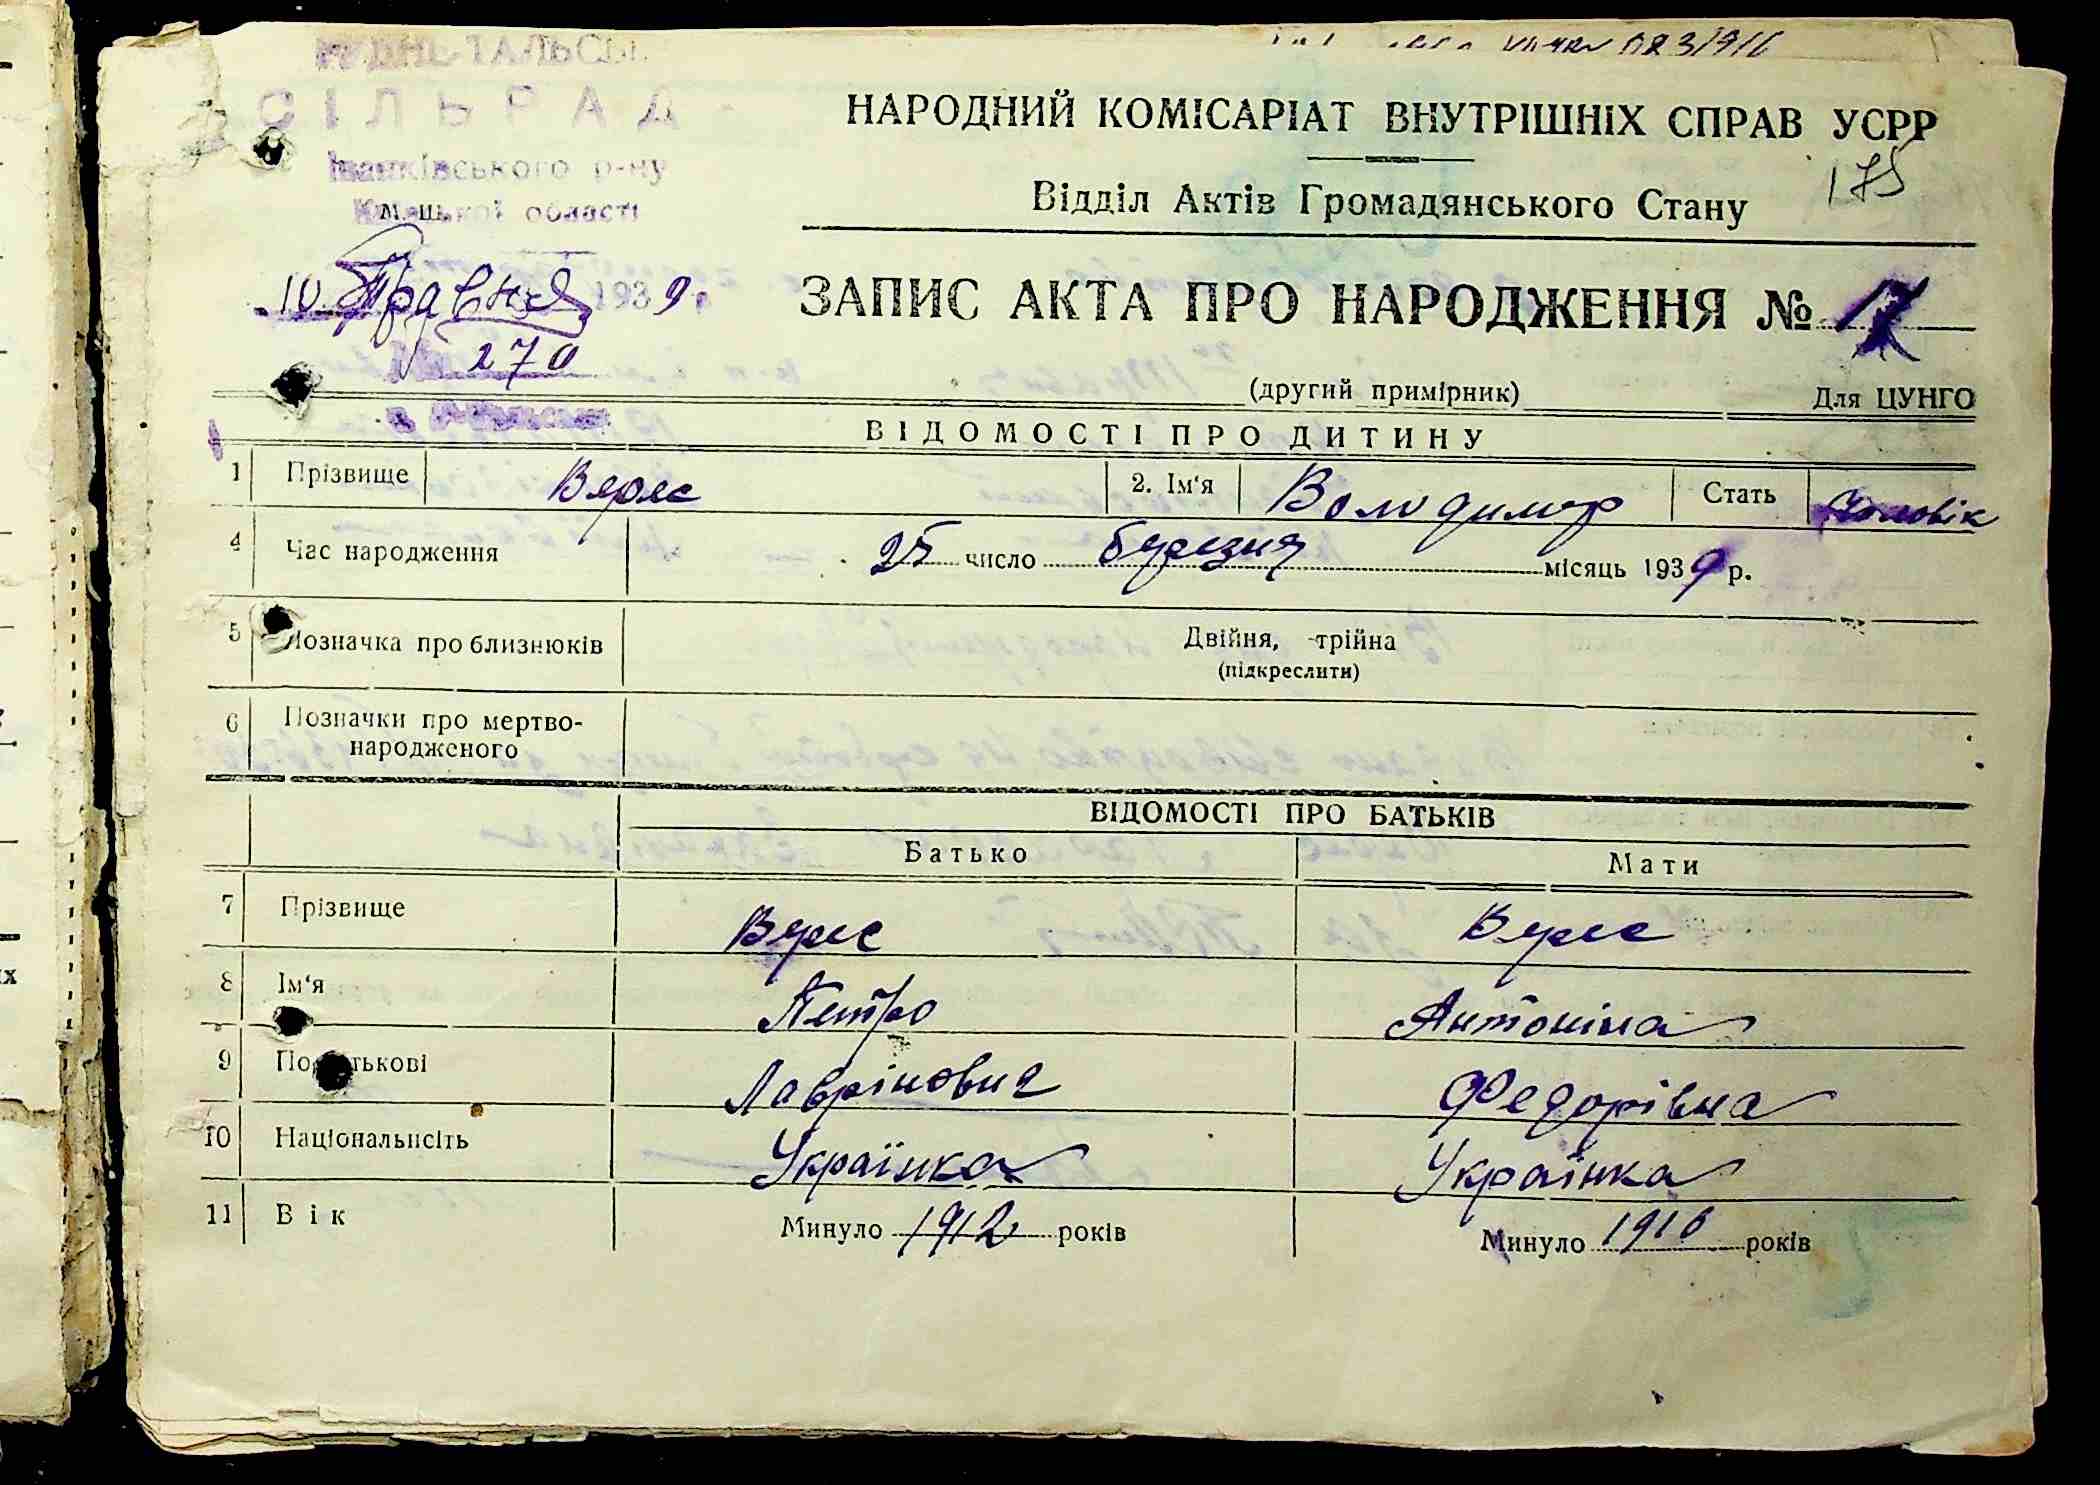 СІЛЬРАДА
Іванківського р-ну
Київської області
НАРОДНИЙ КОМІСАРІАТ ВНУТРІШНІХ СПРАВ УСРР
175
Відділ Актів Громадянського Стану
10 Травня 1939 р.
270
ЗАПИС АКТА ПРО НАРОДЖЕННЯ №
(другий примірник)
Для ЦУНГО
ВІДОМОСТІ ПРО ДИТИНУ
1 Прізвище Верес 2. Ім'я Володимир Стать Чоловік
4 Час народження 25 число березня місяць 1939 р.
5 Позначка про близнюків Двійня, трійна
(підкреслити)
6 Позначки про мертво-
народженого
ВІДОМОСТІ ПРО БАТЬКІВ
Батько Мати
7 Прізвище Верес Верес
8 Ім'я Петро Антоніна
9 По батькові Лаврінович Федорівна
10 Національність Українка Українка
11 Вік Минуло 1912 років Минуло 1916 років